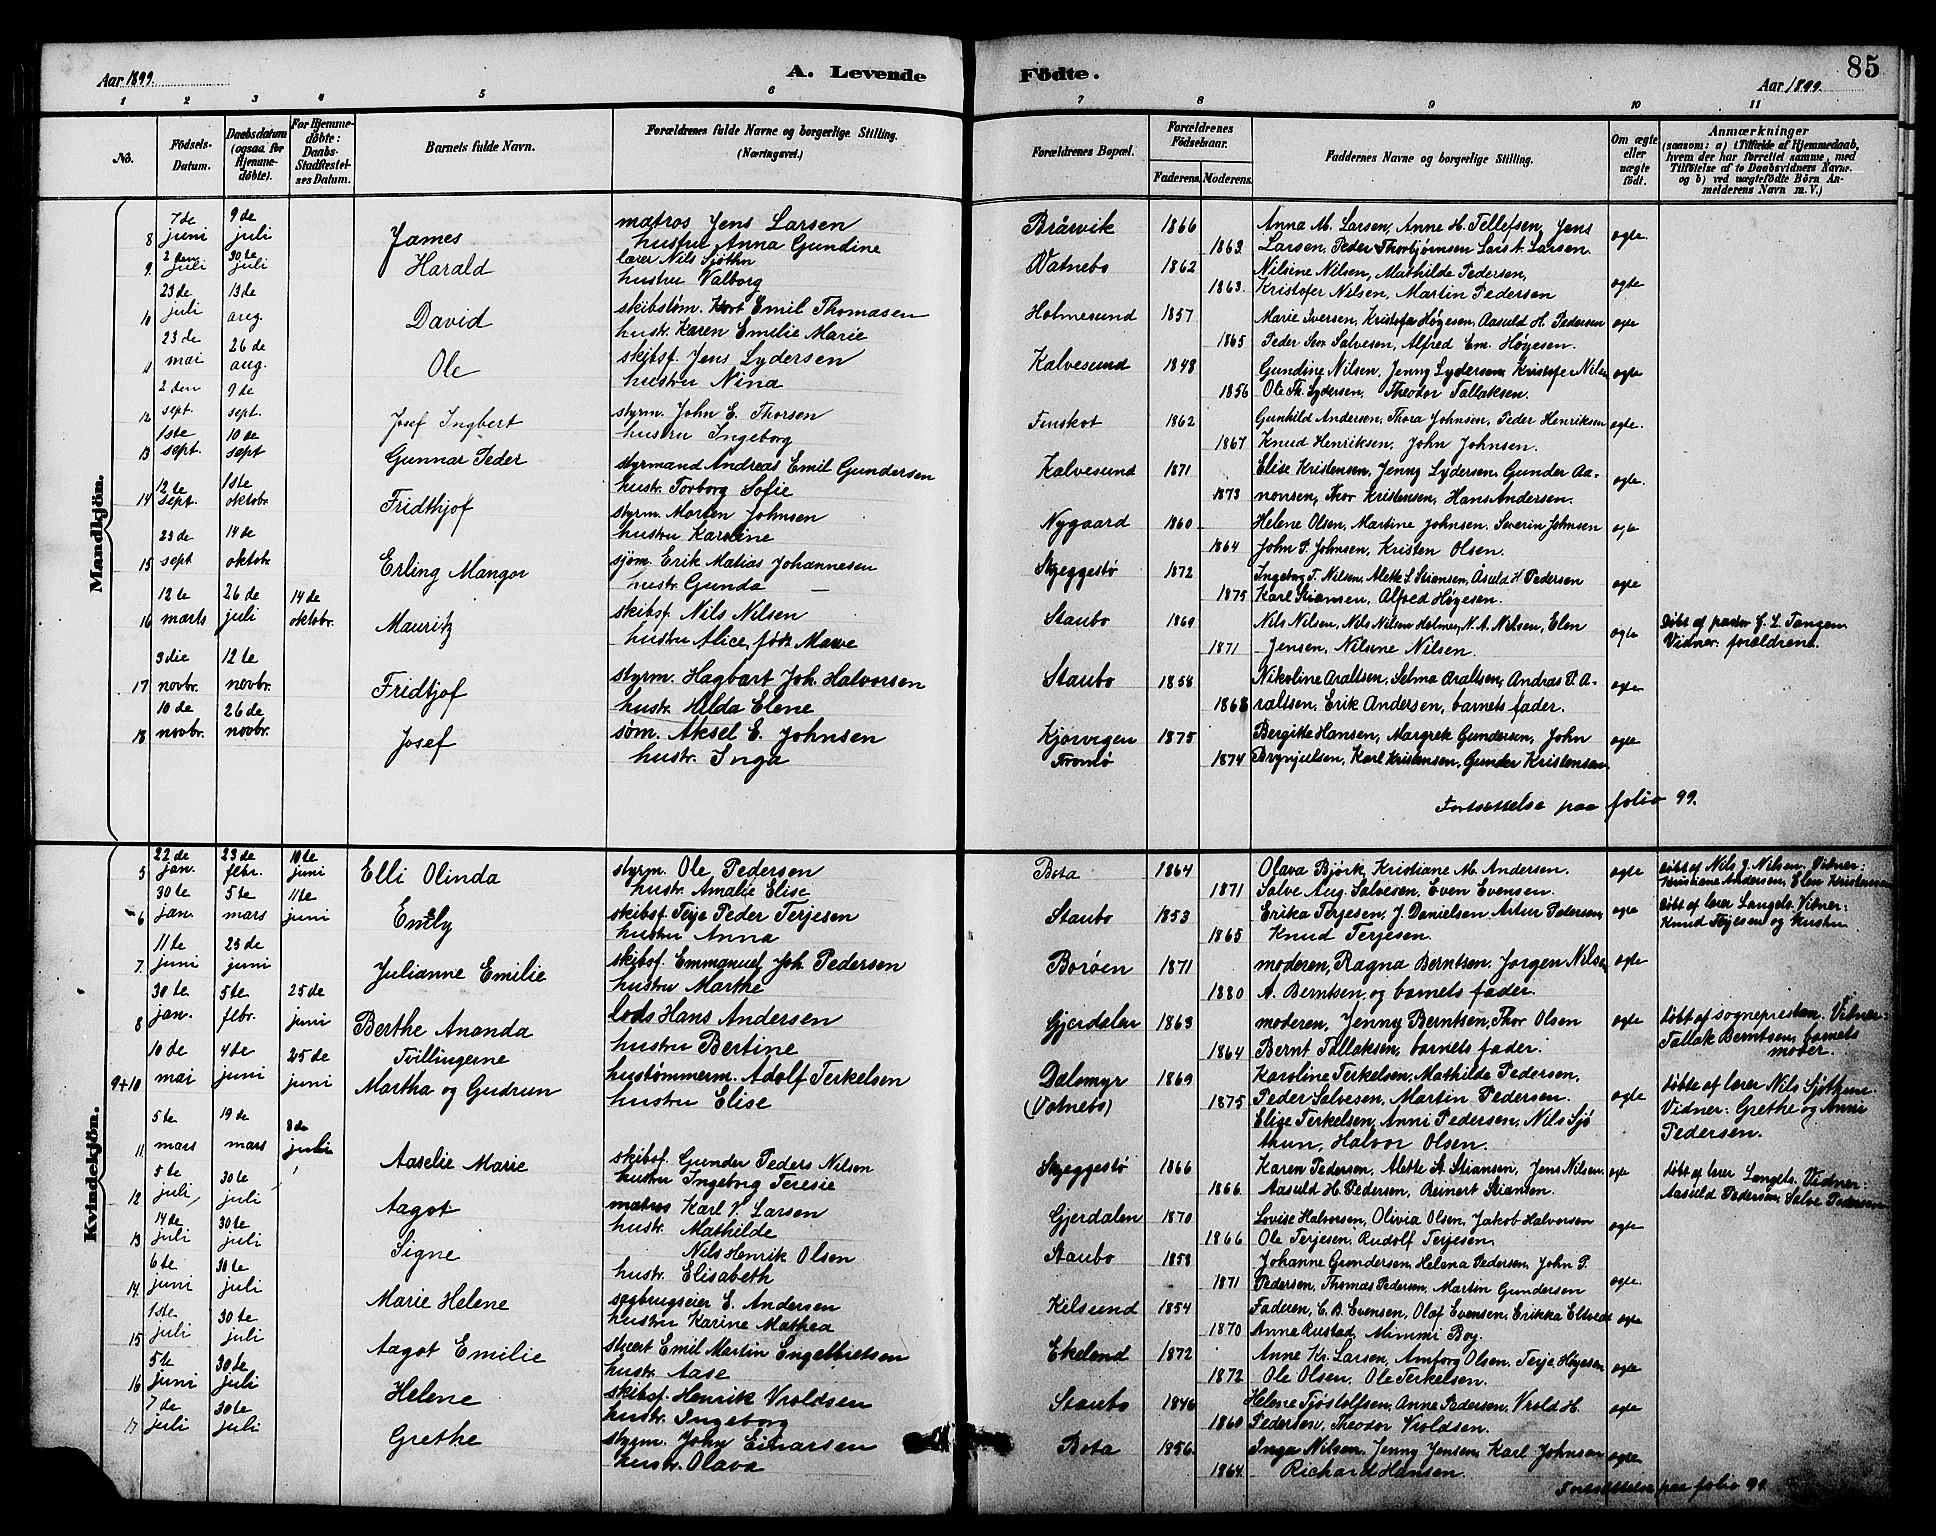 Aar 1899.
A. Levende
Födte.
85
Aar 1899.
1 2 3 4 5 6 7 8 9 10 11
No.
Födsels-
Datum.
Daabsdatum
(ogsaa for
Hjemme-
døbte).
For Hjemme-
døbte:
Daabs-
Stadfestel-
ses Datum.
Barnets fulde Navn.
Forældrenes fulde Navne og borgerlige Stilling.
(Næringsvei.)
Forældrenes Bopæl.
Forældrenes
Födselsaar.
Faderens. Moderens.
Faddernes Navne og borgerlige Stilling.
Om ægte
eller
uægte
født.
Anmærkninger
(saasom: a) i Tilfælde af Hjemmedaab,
hvem der har forrettet samme, med
Tilføielse af to Daabsvidners Navne.
og b) ved uægtefödte Börn An-
melderens Navn m. V.)
Mandkjön.
8 7de juni 9de juli James matros Jens Larsen Bråsvik 1866 Anna M. Larsen, Anne H. Tellefsen, Jens
hustru Anna Gundine 1863 Larsen, Peder Thorbjørnsen Lars A. Larsen. ægte
9. 2den juli 30te juli Harald lærer Nils Sjøthn Vatnebo 1862 Nilsine Nilsen, Mathilde Pedersen,
hustru Valborg 1863. Kristofer Nilsen, Martin Pedersen ægte
10 23de juli 13de aug. David skibstøm. Kort Emil Thomasen Holmesund 1857 Marie Iversen, Kristofer Høgesen, Aasuld H. Pedersen ægte
hustr. Karen Emilie Marie 1865 Peder Salvesen, Alfred Em. Høgesen.
11 23de mai 26de aug. Ole skibsf. Jens Lydersen Kalvesund 1848 Gundine Nilsen, Jenny Lydersen, Kristofer Nilsen ægte
hustru Nina 1856 Ole Th. Lydersen, Theodor Tallaksen.
12 2den sept. 9de sept. Josef Ingbert styrm. John E. Thorsen Finskot 1862 Gunhild Andersen, Thora Johnsen, Peder Henriksen ægte.
hustru Ingeborg 1867 Knud Henriksen, John Johnsen.
13 1ste sept. 10de sept Gunnar Peder styrmand Andreas Emil Gundersen Kalvesund 1871 Elise Kristensen, Jenny Lydersen, Gunder Aa-
hustr. Torborg Sofie 1873 nonsen, Thor Kristensen, Hans Andersen. ægte.
14 12te sept. 1ste oktobr. Fridthjof styrm. Morten Johnsen Nygaard 1860 Helene Olsen, Martine Johnsen. Severin Johnsen ægte
hustru Karoline 1864 John P. Johnsen, Kristen Olsen.
15 23de sept 14de oktobr Erling Mangor sjøm. Erik Matias Johannesen Skjeggestø 1872 Ingeborg T. Nilsen, Alette S. Stiansen, Åsuld H. Pedersen
hustr. Gunda 1875 Karl Stiansen, Alfred Høgesen. ægte
16 12te marts 26de juli 14de oktobr. Mauritz skibsf. Nils Nilsen Staubo 1869 Nils Nilsen, Nils Nilsen Holmen, N. A. Nilsen, Elen ægte Døbt af pastor J. L. Tangen
hustru Alice, født Mawe 1871 Jensen, Nilsine Nilsen. Vidner: forældrene.
17 3die novbr. 12te novbr. Fridtjof styrm. Hagbart Joh. Halvorsen Staubo 1858 Nikoline Araltsen, Selma Araltsen, Andras P. A-
hustr. Hilda Elene 1868 raltsen, Erik Andersen, barnets fader. ægte
18 10de novbr. 26de novbr. Josef søm. Aksel E. Johnsen Kjørvigen 1875 Bergitte Hansen, Margrete Gundersen, John ægte
hustr. Inga Tromø 1874 Brynjulsen, Karl Kristensen, Gunder Kristensen
Fortsættelse paa folio 99.
Kvindekjön.
5 22de jan. 23de fbr. 10te juni Elli Olinda styrm. Ole Pedersen Bota 1864 Olava Bjørk, Kristiane M. Andersen. ægte døbt af Nils J. Nilsen, Vidner:
hustr. Amalie Elise 1871 Salve Aug. Salvesen, Even Evensen. Kristiane Andersen, Elen Kristensen
6 30te jan. 5te mars 11te juni Emly skibsf. Teije Peder Terjesen Staubo 1853 Erika Terjesen, J. Danielsen Artur Pedersen, ægte døbt af lærer Langels. Vidner:
hustru Anna 1865 Knud Terjesen. Knud Terjesen og hustru
7. 11te juni 25de juni Julianne Emilie skibsf. Emmanuel Joh. Pedersen Borøen 1871 moderen, Ragna Berntsen, Jorgen Nilsen ægte
hustru Marthe 1880 A. Berntsen, og barnets fader.
8 30te jan. 5te fbr. 25de juni Berthe Ananda lods Hans Andersen Gjerdalen 1863 moderen, Jenny Berntsen, Thor Olsen ægte døbt af sogneprestan. Vidner:
hustru Bertine 1864 Bernt Tallaksen, barnets fader. Tallak Berntsen, barnets
moder.
9+10 10de mai 4de juni 25de juni Tvillingerne
Martha og Gudrun hustømmerm. Adolf Terkelsen Dalsmyr 1869 Karoline Terkelsen, Mathilde Pedersen,
hustru Elise (Vatnebo) 1875 Peder Salvesen, Martin Pedersen. ægte døbte af lærer Nils Sjøthun
Elise Terkelsen, Anni Pedersen, Nils Sjø Vidner: Grethe og Anni
thun, Halvor Olsen. Pedersen.
11 5te mars 19de mars 3de juli Aaselie Marie skibsf. Gunder Peders Nilsen Skjeggestø 1866 Karen Pedersen, Alette A. Stiansen, Jens Nilsen. ægte døbt af lærer Langels. Vidner:
hustru Ingeborg Teresie 1866. Aasuld H. Pedersen, Reinert Stiansen. Aasuld Pedersen, Salve Pedersen
12 5te juli 30te juli Aagot matros Karl V. Larsen Gjerdalen 1870 Lovise Halvorsen, Olivia Olsen, Jakob Halvorsen ægte
hustr. Mathilde 1866 Ole Terjesen, Rudolf Terjesen.
13 14de juli 30te juli Signe Nils Henrik Olsen Staubo 1858 Johanne Gundersen, Helena Pedersen, John P.
hustr. Elisabeth 1871 Pedersen, Thomas Pedersen, Martin Gundersen ægte.
14. 6te juni 30te juli Marie Helene sagbrugseier E. Andersen Kilsund 1854 Faderen, C. B. Evensen, Olaf Evensen, Erikka Eltvedt ægte
hustru Karine Mathea 1870 Anna Rustad, Mimmi Boy.
15 1ste juli 30te juli Aagot Emilie stuert Emil Martin Engelbretsen Ekelend 1872 Anne Kr. Larsen, Amborg Olsen, Teije Høgesen ægte
hustr. Aase 1872 Ole Olsen, Ole Terkelsen.
16 5te juni 30te juli Helene skibsf. Henrik Vroldsen Staubo 1846 Helene Tjøstolfsen, Anne Pedersen, Vrold H. ægte
hustr. Ingeborg 1860 Pedersen, Theodor Vroldsen.
17 7de juli 30te juli Grethe styrm. John Einarsen Bota 1856. Inga Nilsen, Jenny Jensen, Karl Johnsen ægte
hustr. Olava 1864. Richard Hansen.
Fortsættelse paa folio 99.